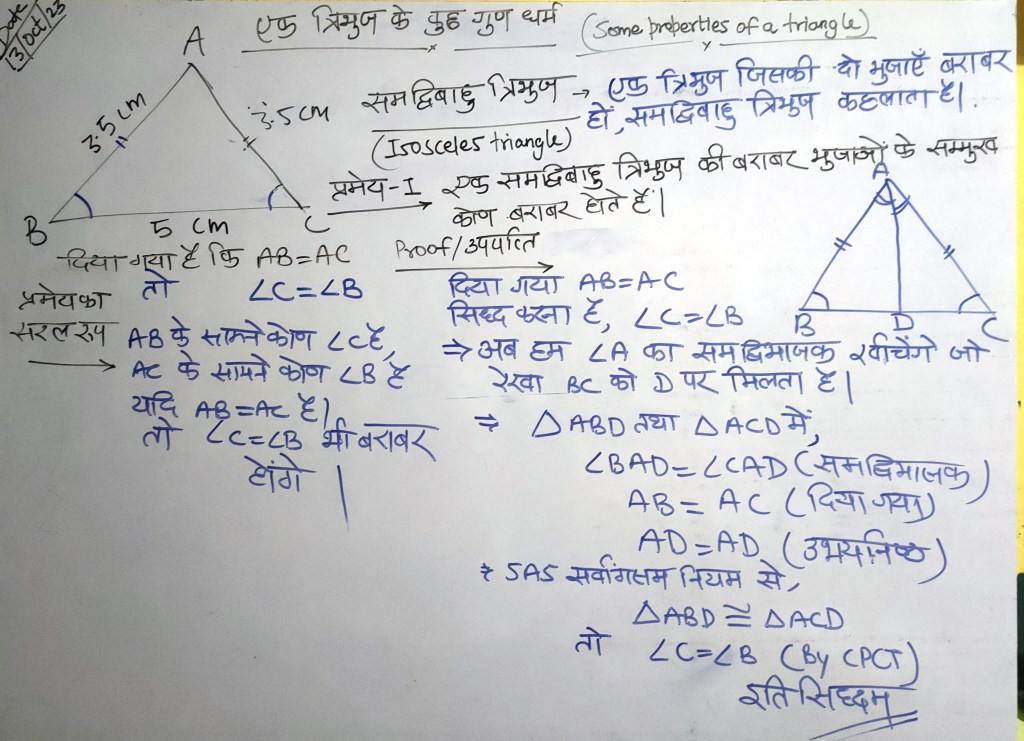 Date
13/Oct/23
एक त्रिभुज के कुछ गुण धर्म (Some properties of a triangle)
A
3.5 cm
3.5 cm
B
5 cm
C
समद्विबाहु त्रिभुज → एक त्रिभुज जिसकी दो भुजाएँ बराबर
(Isosceles triangle) हों, समद्विबाहु त्रिभुज कहलाता है।
प्रमेय-I एक समद्विबाहु त्रिभुज की बराबर भुजाओं के सम्मुख
कोण बराबर होते हैं।
दिया गया है कि AB=AC
तो ∠C=∠B
प्रमेय का
सरल रूप
AB के सामने कोण ∠C है,
AC के सामने कोण ∠B है
यदि AB=AC है।
तो ∠C=∠B भी बराबर
होंगे।
Proof/उपपत्ति
दिया गया AB=AC
सिद्ध करना है, ∠C=∠B
A
B
D
C
⇒ अब हम ∠A का समद्विभाजक खींचेंगे जो
रेखा BC को D पर मिलता है।
⇒ △ABD तथा △ACD में,
∠BAD=∠CAD (समद्विभाजक)
AB = AC (दिया गया)
AD=AD (उभयनिष्ठ)
⇒ SAS सर्वांगसम नियम से,
△ABD ≅ △ACD
तो ∠C=∠B (By CPCT)
इति सिद्धम्